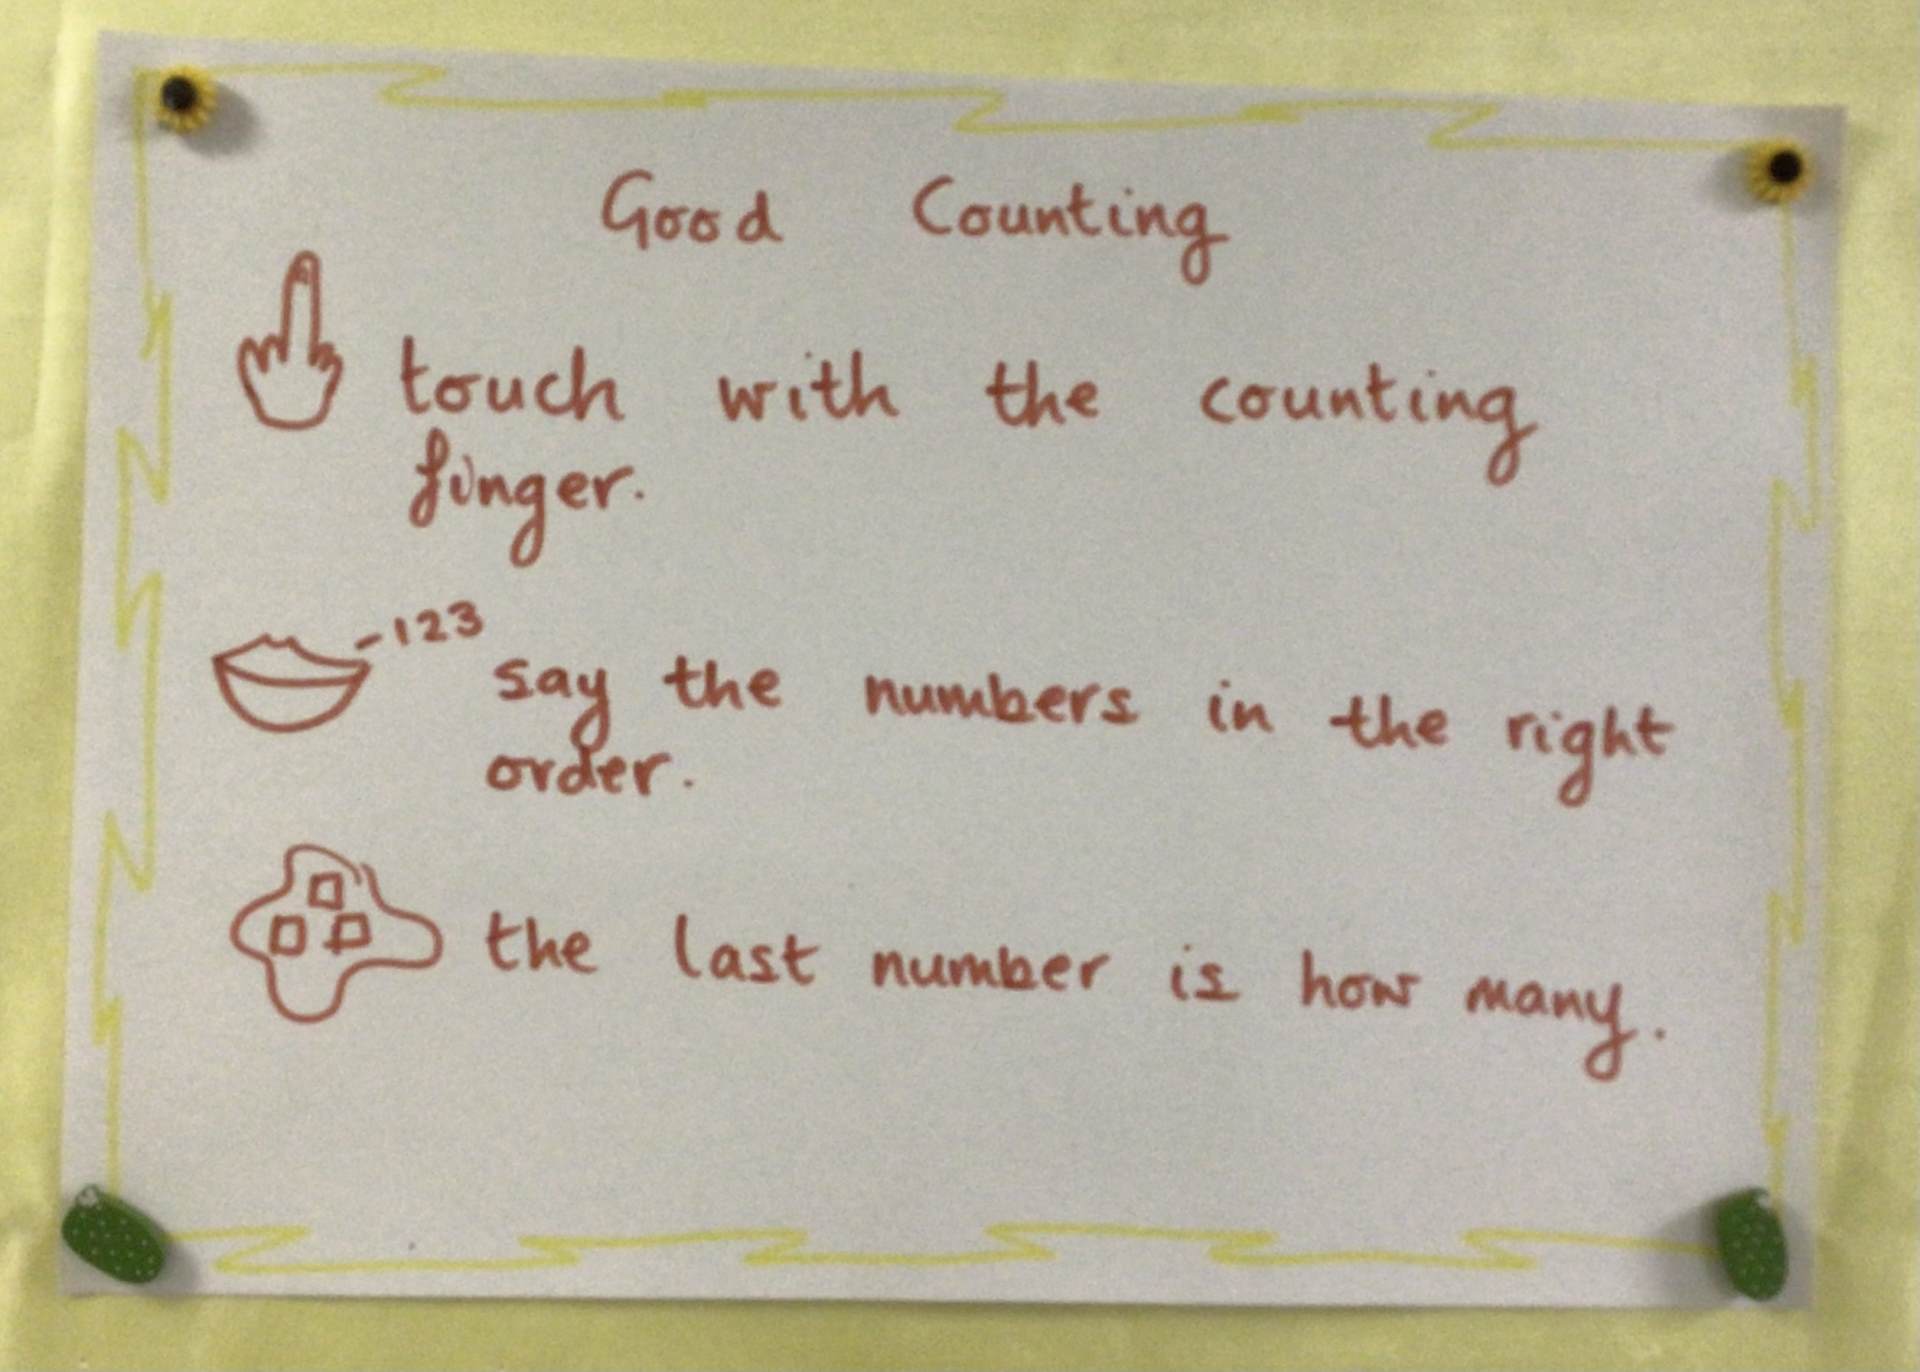 Good Counting
touch with the counting
finger.
-123
say the numbers in the right
order.
the last number is how many.